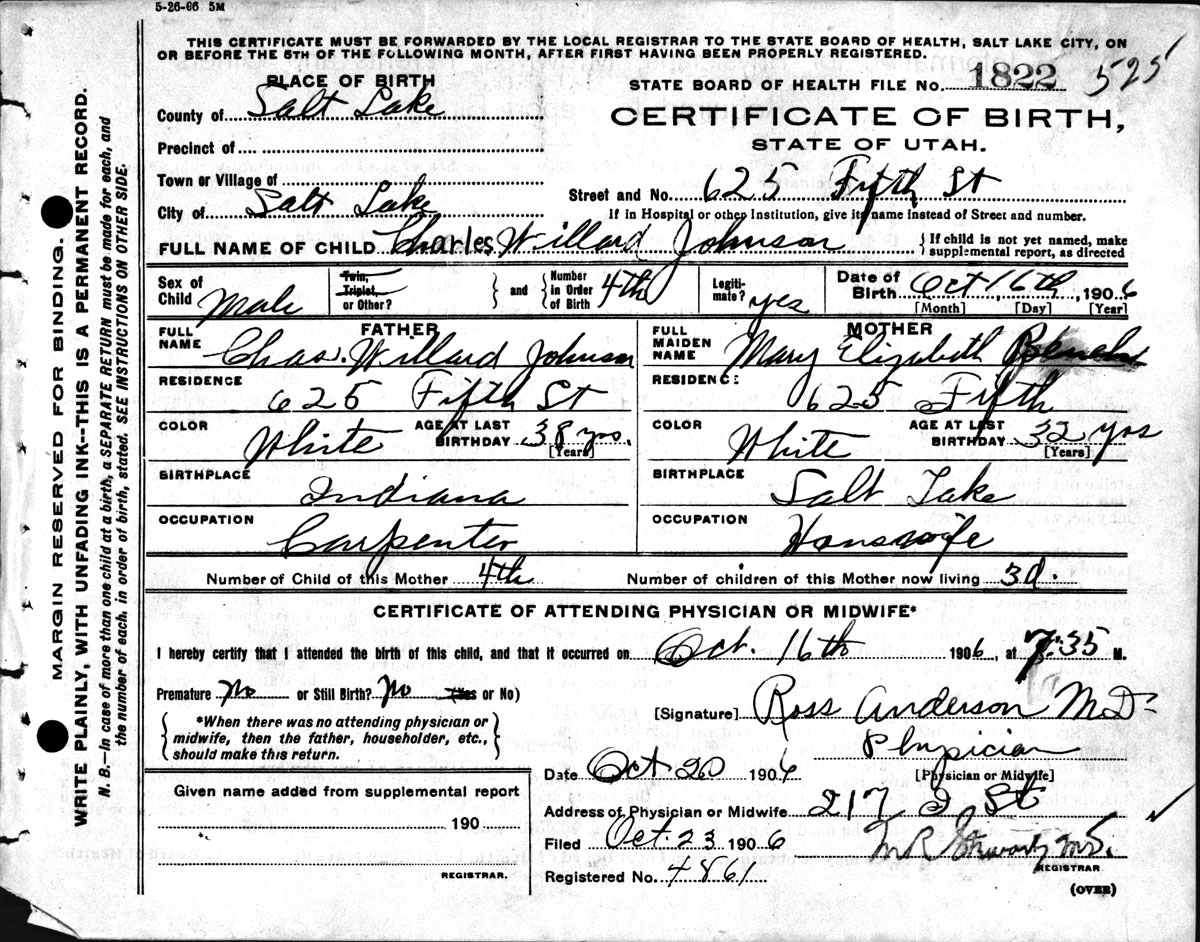 5-26-06 5M
THIS CERTIFICATE MUST BE FORWARDED BY THE LOCAL REGISTRAR TO THE STATE BOARD OF HEALTH, SALT LAKE CITY, ON
OR BEFORE THE 5TH OF THE FOLLOWING MONTH, AFTER FIRST HAVING BEEN PROPERLY REGISTERED.
MARGIN RESERVED FOR BINDING.
WRITE PLAINLY, WITH UNFADING INK--THIS IS A PERMANENT RECORD.
N. B.—In case of more than one child at a birth, a SEPARATE RETURN must be made for each, and
the number of each, in order of birth, stated. SEE INSTRUCTIONS ON OTHER SIDE.
PLACE OF BIRTH
County of Salt Lake
Precinct of
Town or Village of
City of Salt Lake
STATE BOARD OF HEALTH FILE No. 1822 525
CERTIFICATE OF BIRTH,
STATE OF UTAH.
Street and No. 625 Fifth St
If in Hospital or other Institution, give its name instead of Street and number.
FULL NAME OF CHILD Charles Willard Johnson { If child is not yet named, make supplemental report, as directed
Sex of Child Male Twin, Triplet, or Other? } and { Number in Order of Birth 4th Legiti-mate? yes Date of Birth Oct 16th, 1906
[Month] [Day] [Year]
FATHER
FULL NAME Chas. Willard Johnson
RESIDENCE 625 Fifth St
COLOR White AGE AT LAST BIRTHDAY 38 yrs.
[Years]
BIRTHPLACE Indiana
OCCUPATION Carpenter
MOTHER
FULL MAIDEN NAME Mary Elizabeth
RESIDENCE 625 Fifth
COLOR White AGE AT LAST BIRTHDAY 32 yrs
[Years]
BIRTHPLACE Salt Lake
OCCUPATION Housewife
Number of Child of this Mother 4th Number of children of this Mother now living 3
CERTIFICATE OF ATTENDING PHYSICIAN OR MIDWIFE*
I hereby certify that I attended the birth of this child, and that it occurred on Oct. 16th 1906, at 7:35 M.
Premature No or Still Birth? No (Yes or No)
{ *When there was no attending physician or midwife, then the father, householder, etc., should make this return. }
[Signature] Ross Anderson M.D.
Physician
[Physician or Midwife]
Date Oct 20 1906
Given name added from supplemental report
190
REGISTRAR.
Address of Physician or Midwife 217 I St
Filed Oct. 23 1906
M R Stewart M.D.
REGISTRAR.
Registered No. 4861
(OVER)